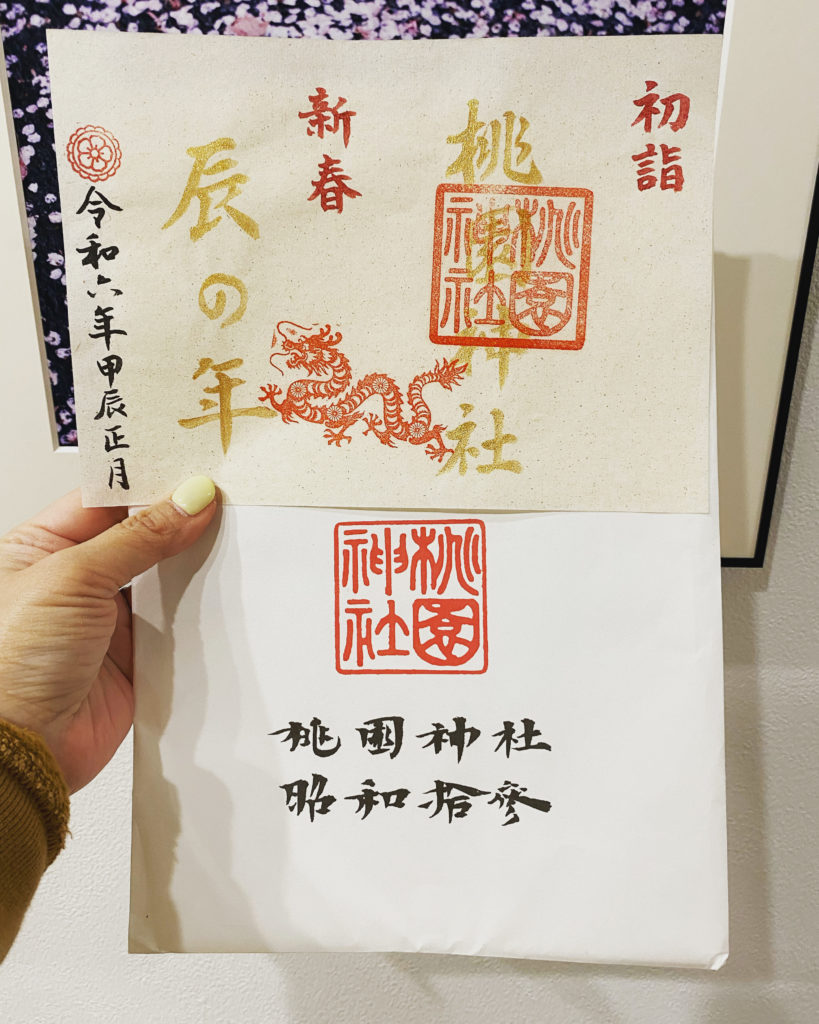 初詣
桃園神社
桃園神社
新春
辰の年
令和六年甲辰正月
桃園神社
桃園神社
昭和拾參